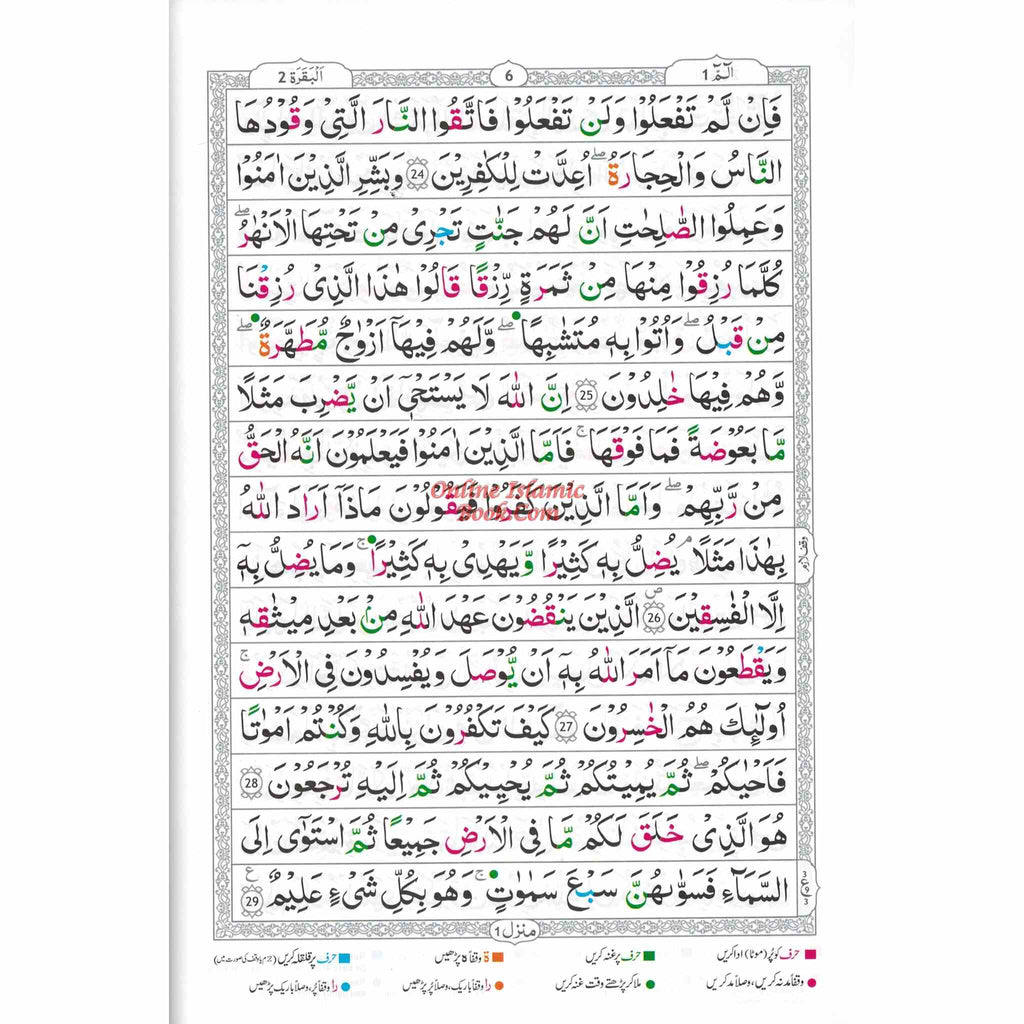 الٓمّٓ 1
6
اَلْبَقَرَة 2
فَاِنْ لَّمْ تَفْعَلُوْا وَلَنْ تَفْعَلُوْا فَاتَّقُوا النَّارَ الَّتِیْ وَقُوْدُهَا
النَّاسُ وَالْحِجَارَةُ ۖۚ اُعِدَّتْ لِلْكٰفِرِیْنَ 24 وَبَشِّرِ الَّذِیْنَ اٰمَنُوْا
وَعَمِلُوا الصّٰلِحٰتِ اَنَّ لَهُمْ جَنّٰتٍ تَجْرِیْ مِنْ تَحْتِهَا الْاَنْهٰرُ ؕ
كُلَّمَا رُزِقُوْا مِنْهَا مِنْ ثَمَرَةٍ رِّزْقًا قَالُوْا هٰذَا الَّذِیْ رُزِقْنَا
مِنْ قَبْلُ ۖ وَاُتُوْا بِهٖ مُتَشَابِهًا ۖ وَلَهُمْ فِیْهَاۤ اَزْوَاجٌ مُّطَهَّرَةٌ ۖ
وَّهُمْ فِیْهَا خٰلِدُوْنَ 25 اِنَّ اللّٰهَ لَا یَسْتَحْیٖۤ اَنْ یَّضْرِبَ مَثَلًا
مَّا بَعُوْضَةً فَمَا فَوْقَهَا ۚ فَاَمَّا الَّذِیْنَ اٰمَنُوْا فَیَعْلَمُوْنَ اَنَّهُ الْحَقُّ
مِنْ رَّبِّهِمْ ۖ وَاَمَّا الَّذِیْنَ كَفَرُوْا فَیَقُوْلُوْنَ مَاذَاۤ اَرَادَ اللّٰهُ
Online Islamic
Book.Com
بِهٰذَا مَثَلًا ۘ یُضِلُّ بِهٖ كَثِیْرًا وَّیَهْدِیْ بِهٖ كَثِیْرًا ۚ وَمَا یُضِلُّ بِهٖۤ
وقف لازم
اِلَّا الْفٰسِقِیْنَ 26 الَّذِیْنَ یَنْقُضُوْنَ عَهْدَ اللّٰهِ مِنْ بَعْدِ مِیْثَاقِهٖ
وَیَقْطَعُوْنَ مَاۤ اَمَرَ اللّٰهُ بِهٖۤ اَنْ یُّوْصَلَ وَیُفْسِدُوْنَ فِی الْاَرْضِ ۚ
اُولٰٓئِكَ هُمُ الْخٰسِرُوْنَ 27 كَیْفَ تَكْفُرُوْنَ بِاللّٰهِ وَكُنْتُمْ اَمْوَاتًا
فَاَحْیَاكُمْ ۖ ثُمَّ یُمِیْتُكُمْ ثُمَّ یُحْیِیْكُمْ ثُمَّ اِلَیْهِ تُرْجَعُوْنَ 28
هُوَ الَّذِیْ خَلَقَ لَكُمْ مَّا فِی الْاَرْضِ جَمِیْعًا ثُمَّ اسْتَوٰۤی اِلَی
السَّمَآءِ فَسَوّٰىهُنَّ سَبْعَ سَمٰوٰتٍ ۚ وَهُوَ بِكُلِّ شَیْءٍ عَلِیْمٌ 29
منزل 1
حرف کو پُر (موٹا) ادا کریں
حرف پر غنہ کریں
ۃ وقفاً ہ پڑھیں
حرف پر قلقلہ کریں (جزم یا وقف کی صورت میں)
وقفاً مد نہ کریں، وصلاً مد کریں
ملا کر پڑھتے وقت غنہ کریں
را وقفاً باریک، وصلاً پُر پڑھیں
را وقفاً پُر، وصلاً باریک پڑھیں